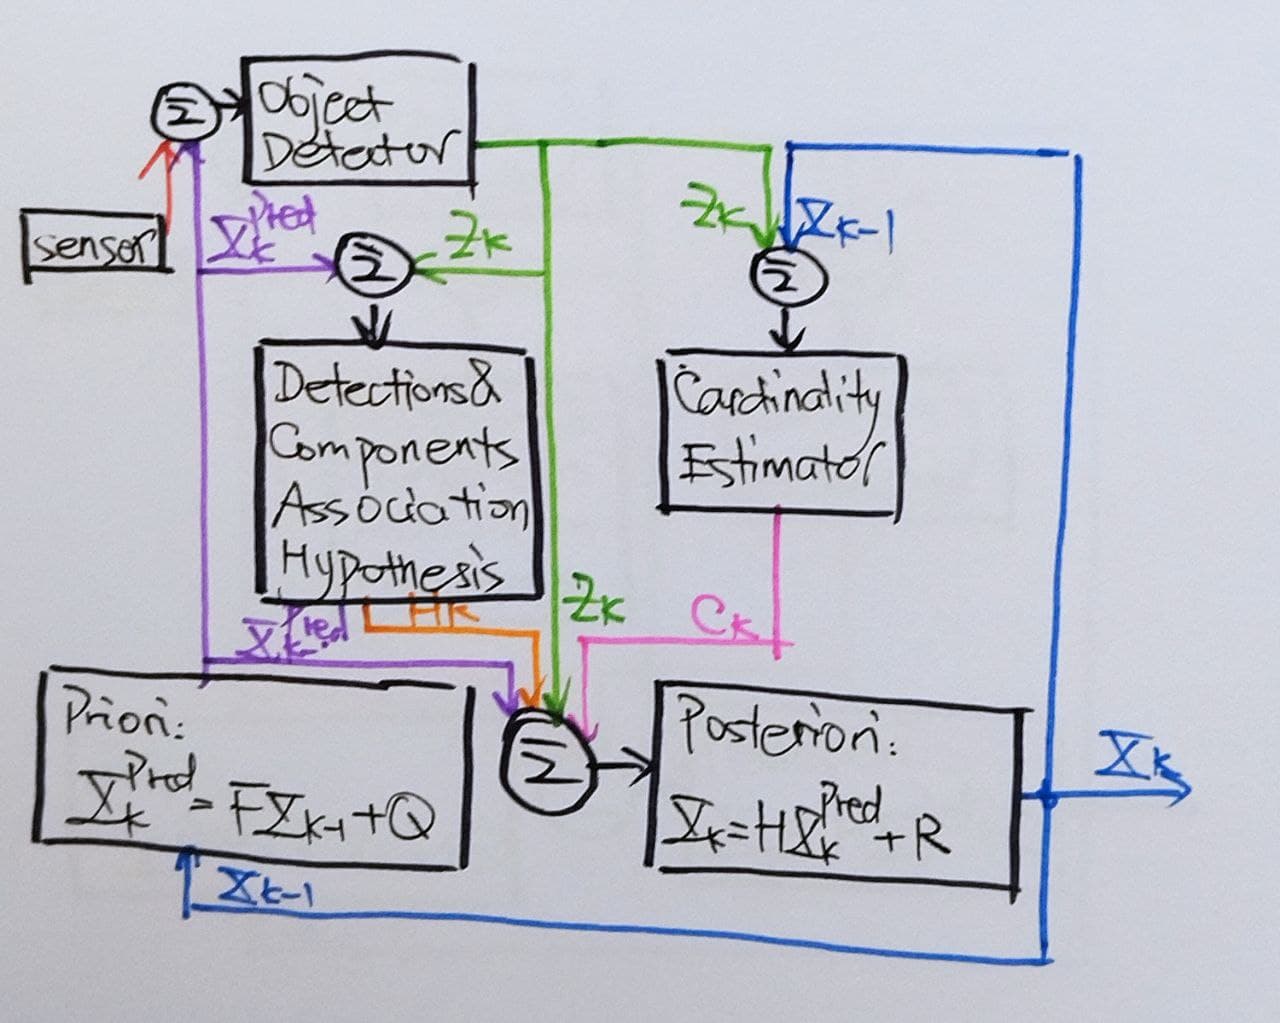 Σ
Object
Detector
sensor
X_k^Pred
Z_k
Σ
Z_k
X_k-1
Σ
Detections &
Components
Association
Hypothesis
Cardinality
Estimator
X_k^Pred
H_k
Z_k
C_k
Priori:
X_k^Pred = FX_k-1 + Q
Σ
Posteriori:
X_k = HX_k^Pred + R
X_k
X_k-1